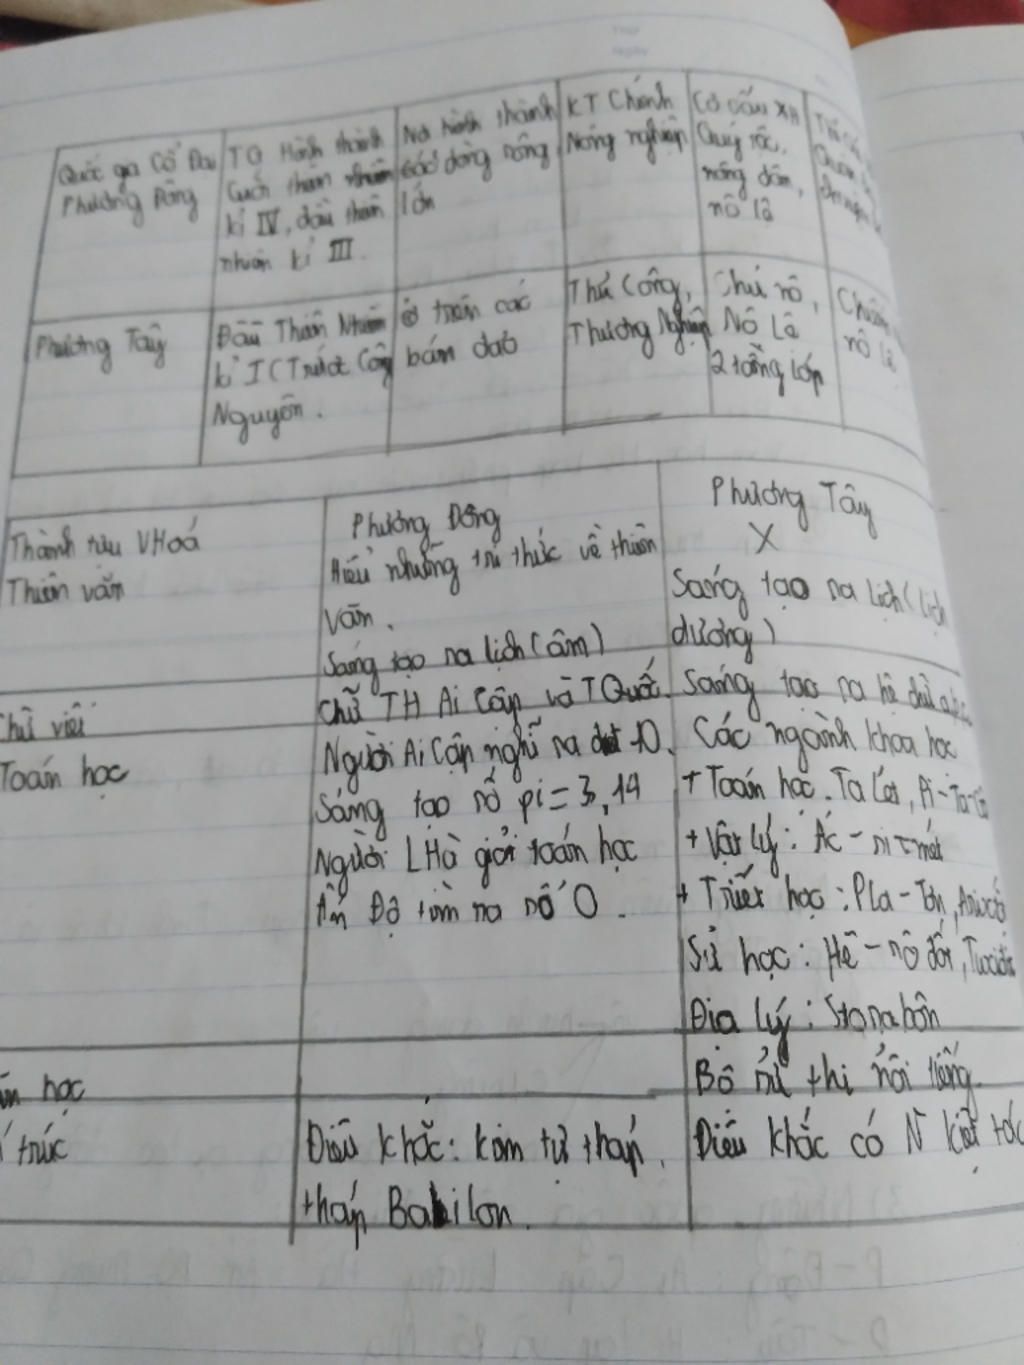 Thứ
Ngày
Quốc gia Cổ Đại
Phương Đông
TG Hình thành
Cuối thiên nhiên
kỉ IV, đầu thiên
nhiên kỉ III.
Nơi hình thành
các dòng sông
lớn
KT Chính
Nông nghiệp
Cơ cấu XH
Quý tộc,
nông dân,
nô lệ
Phương Tây
Đầu Thiên Nhiên
kỉ I (Trước Công
Nguyên.
ở trên các
bán đảo
Thủ Công,
Thương Nghiệp
Chủ nô,
Nô Lệ
2 tầng lớp
Chiếm
nô lệ
Thành tựu VHoá
Phương Đông
Phương Tây
Thiên văn
Hiểu những tri thức về thiên
văn.
Sáng tạo ra lịch (âm)
X
Sáng tạo ra lịch (lịch
dương)
Chữ viết
Chữ TH Ai Cập và TQuốc.
Sáng tạo ra hệ chữ
Toán học
Người Ai Cập nghĩ ra -10.
Sáng tạo số pi = 3,14
Người LHà giỏi toán học
Ấn Độ tìm ra số 0.
Các ngành khoa học
+ Toán học. Ta Lét, Pi-Ta-Go
+ Vật lý: Ác-si-mét
+ Triết học: Pla-Tôn,
Sử học: Hê-rô đốt,
Địa lý: Stơrabôn
Bộ sử thi nổi tiếng.
học
trúc
Điêu khắc: kim tự tháp,
tháp Babilon.
Điêu khắc có N kiệt tác